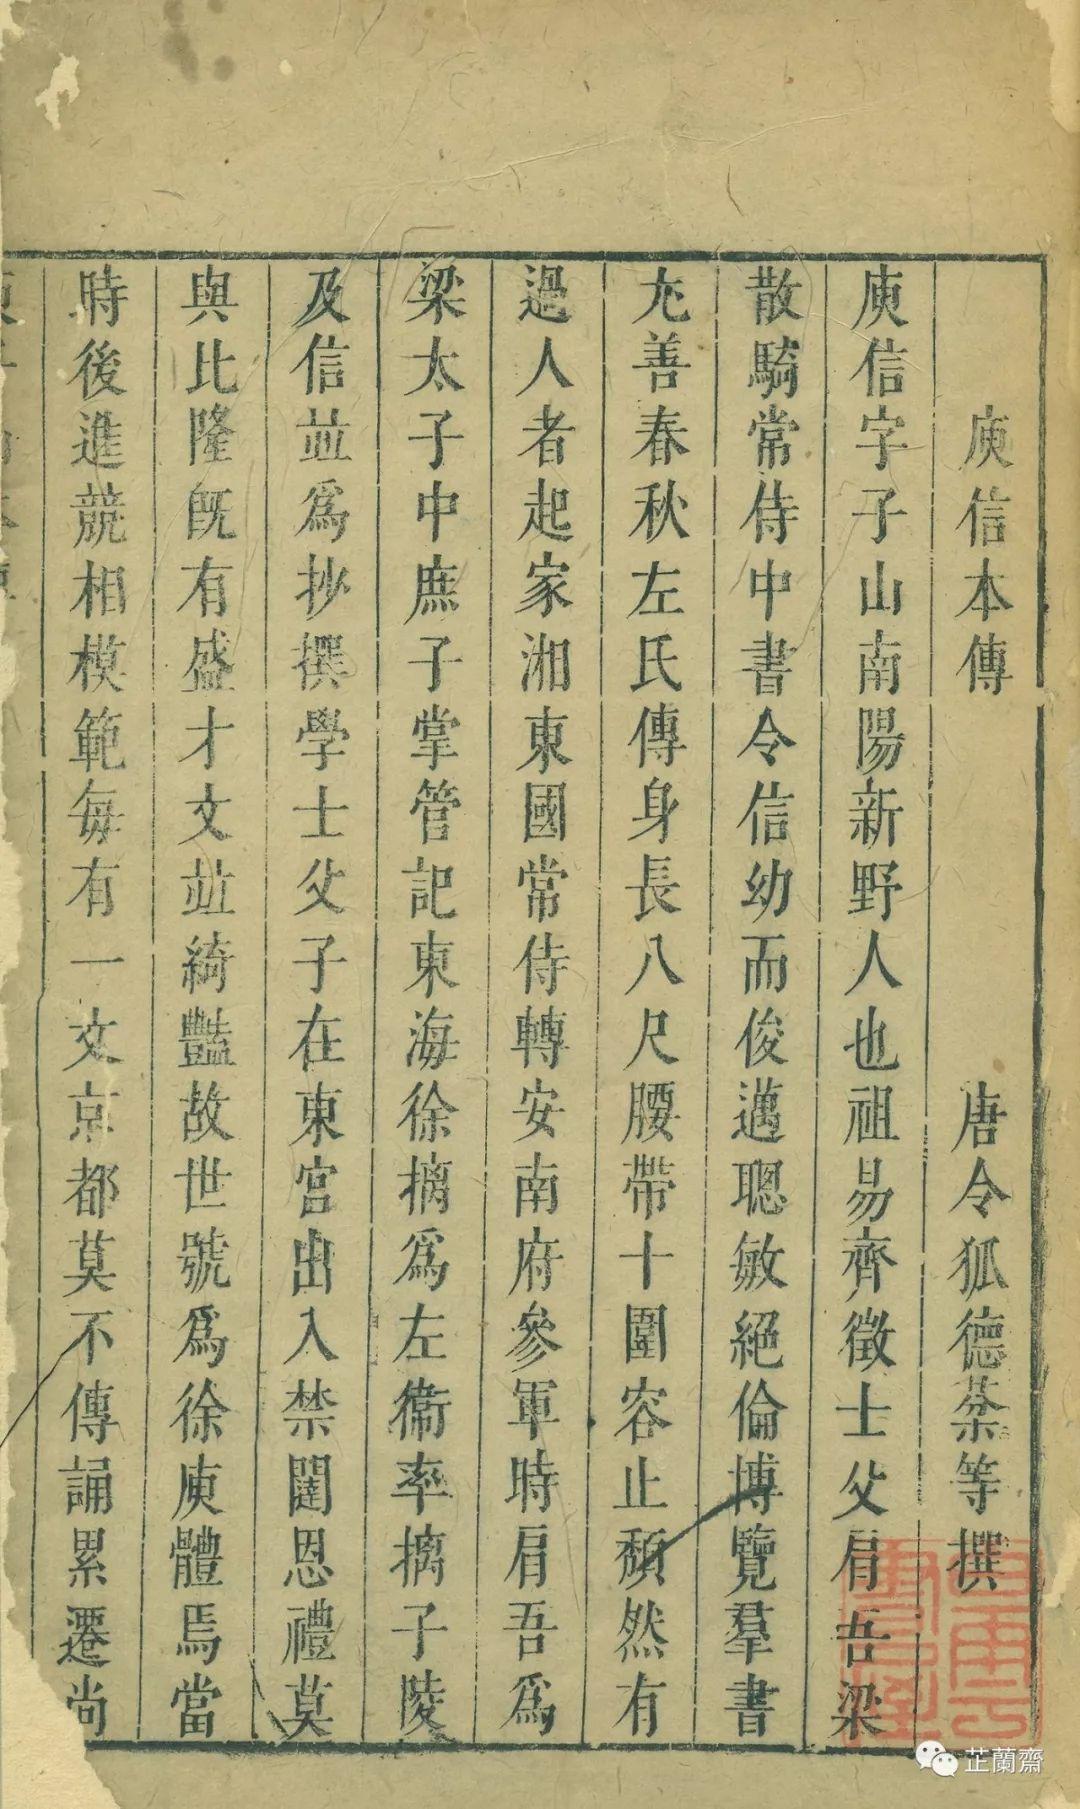 庾信本傳 唐令狐德棻等撰
庾信字子山南陽新野人也祖易齊徵士父肩吾梁
散騎常侍中書令信幼而俊邁聰敏絕倫博覽羣書
尤善春秋左氏傳身長八尺腰帶十圍容止頹然有
過人者起家湘東國常侍轉安南府參軍時肩吾爲
梁太子中庶子掌管記東海徐摛爲左衛率摛子陵
及信並爲抄撰學士父子在東宮出入禁闥恩禮莫
與比隆旣有盛才文並綺豔故世號爲徐庾體焉當
時後進競相模範每有一文京都莫不傳誦累遷尚
芷蘭齋